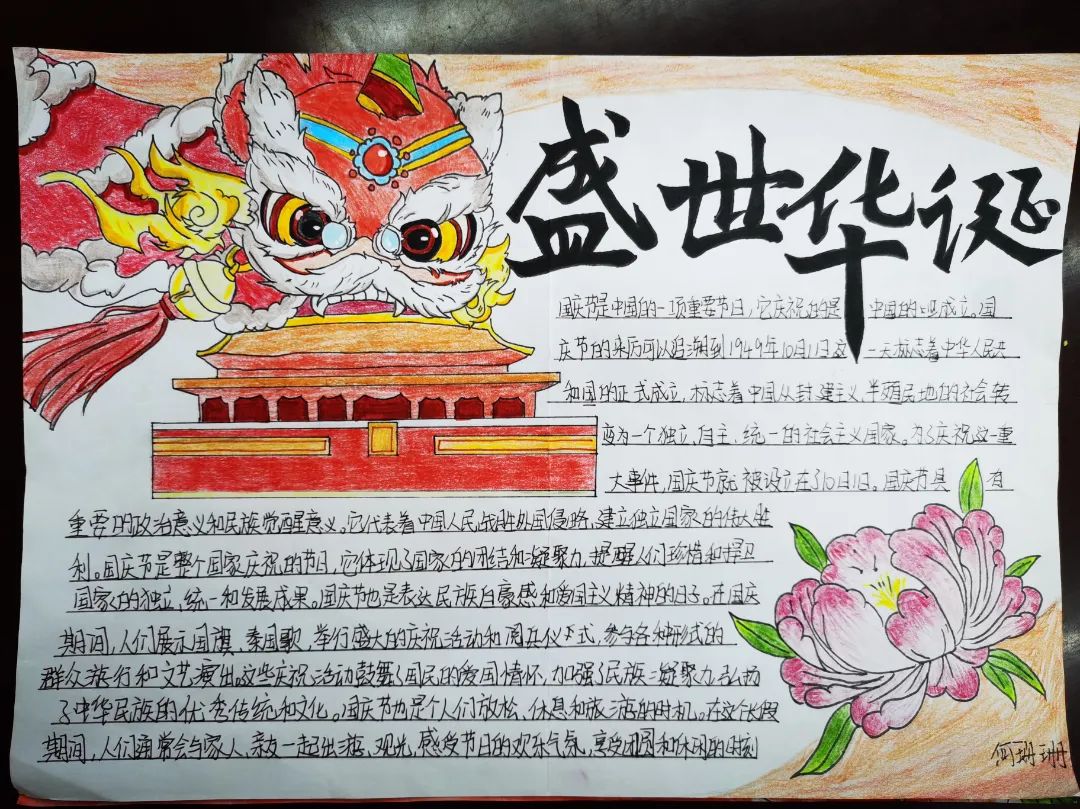 盛世华诞
国庆节是中国的一项重要节日,它庆祝的是 中国的 成立。国
庆节的来历可以追溯到1949年10月1日这 一天标志着中华人民共
和国的正式成立,标志着中国从封建主义、半殖民地的社会转
变为一个独立、自主、统一的社会主义国家。为了庆祝这一重
大事件,国庆节就被设立在了10日1日。国庆节具 有
重要的政治意义和民族觉醒意义。它代表着中国人民战胜外国侵略,建立独立国家的伟大胜
利。国庆节是整个国家庆祝的节日,它体现了国家的团结和凝聚力,提醒人们珍惜和捍卫
国家的独立、统一和发展成果。国庆节也是表达民族自豪感和爱国主义精神的日子。在国庆
期间,人们展示国旗、奏国歌、举行盛大的庆祝活动和阅兵仪式,参与各种形式的
群众游行和文艺演出。这些庆祝活动鼓舞了国民的爱国情怀,加强了民族凝聚力,弘扬
了中华民族的优秀传统和文化。国庆节也是个人们放松、休息和旅游的时机。在这个长假
期间,人们通常会与家人、亲友一起出游、观光,感受节日的欢乐气氛,享受团圆和休闲的时刻
何珊珊